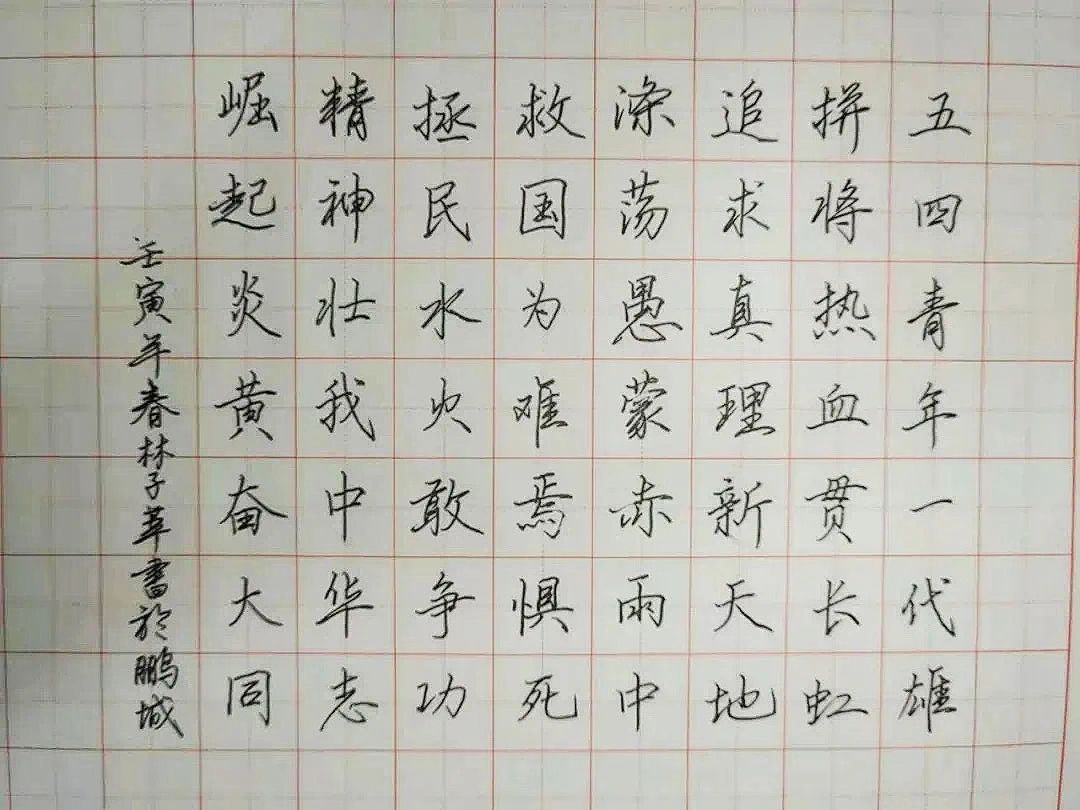 五四青年一代雄
拼将热血贯长虹
追求真理新天地
涤荡愚蒙赤雨中
救国为难焉惧死
拯民水火敢争功
精神壮我中华志
崛起炎黄奋大同
壬寅年春林子苹書於鹏城